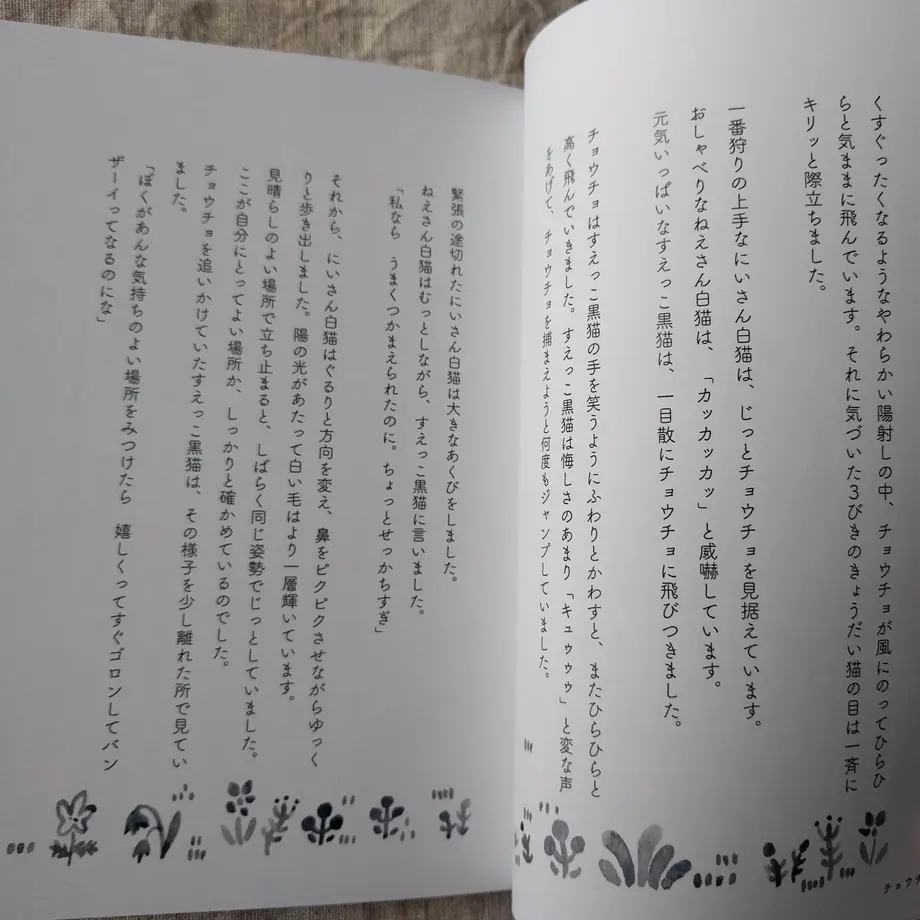 くすぐったくなるようなやわらかい陽射しの中、チョウチョが風にのってひらひ
らと気ままに飛んでいます。それに気づいた3びきのきょうだい猫の目は一斉に
キリッと際立ちました。
一番狩りの上手なにいさん白猫は、じっとチョウチョを見据えています。
おしゃべりなねえさん白猫は、「カッカッカッ」と威嚇しています。
元気いっぱいなすえっこ黒猫は、一目散にチョウチョに飛びつきました。
チョウチョはすえっこ黒猫の手を笑うようにふわりとかわすと、またひらひらと
高く飛んでいきました。すえっこ黒猫は悔しさのあまり「キュゥゥゥ」と変な声
をあげて、チョウチョを捕まえようと何度もジャンプしていました。
緊張の途切れたにいさん白猫は大きなあくびをしました。
ねえさん白猫はむっとしながら、すえっこ黒猫に言いました。
「私なら うまくつかまえられたのに。ちょっとせっかちすぎ」
それから、にいさん白猫はぐるりと方向を変え、鼻をピクピクさせながらゆっく
りと歩き出しました。陽の光があたって白い毛はより一層輝いています。
見晴らしのよい場所で立ち止まると、しばらく同じ姿勢でじっとしていました。
ここが自分にとってよい場所か、しっかりと確かめているのでした。
チョウチョを追いかけていたすえっこ黒猫は、その様子を少し離れた所で見てい
ました。
「ぼくがあんな気持ちのよい場所をみつけたら 嬉しくってすぐゴロンしてバン
ザーイってなるのにな」
チョウチ